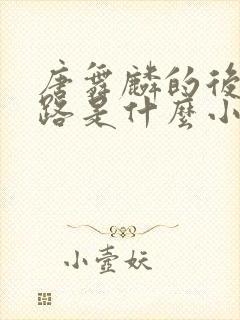 唐舞麟的後
路是什麼小
小壺妖